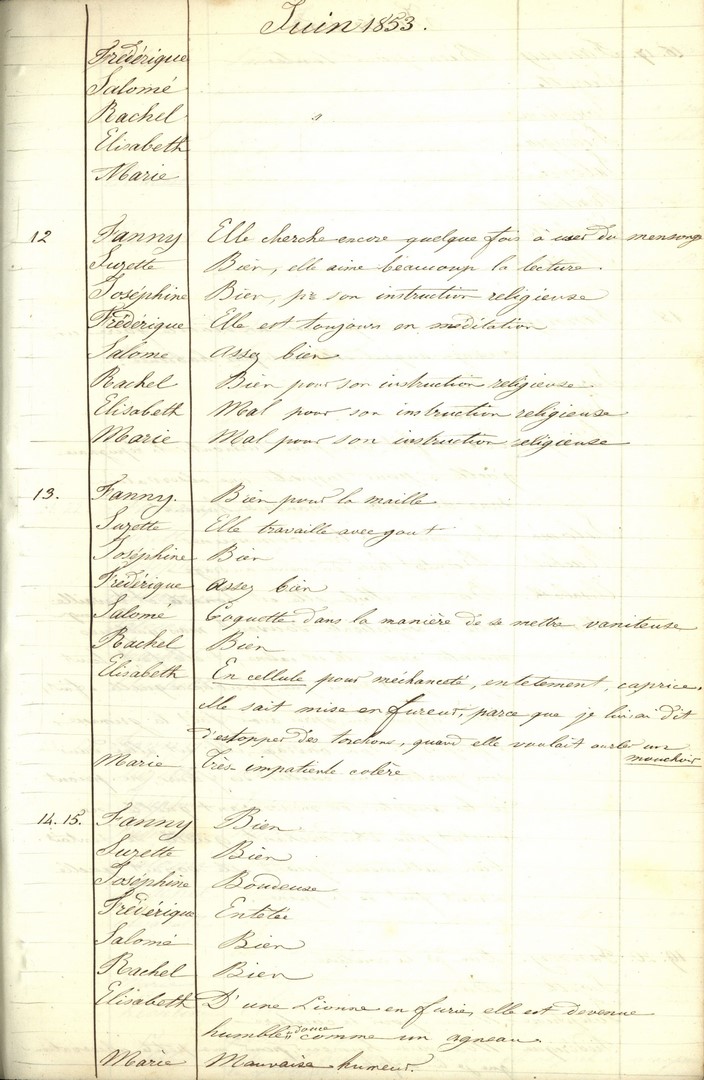 Juin 1853.
Frédérique
Salomé
Rachel
Elisabeth
Marie
12 Fanny Elle cherche encore quelque fois à user du mensonge
Suzette Bien, elle aime beaucoup la lecture.
Joséphine Bien, pr son instruction religieuse
Frédérique Elle est toujours en méditation
Salomé assez bien
Rachel Bien pour son instruction religieuse
Elisabeth Mal pour son instruction religieuse
Marie Mal pour son instruction religieuse
13. Fanny. Bien pour la maille
Suzette Elle travaille avec gout
Joséphine Bien
Frédérique assez bien
Salomé Coquette dans la manière de se mettre vaniteuse
Rachel Bien
Elisabeth En cellule pour méchanceté, entetement, caprice.
Elle sait mise en fureur, parce que je lui ai dit
d'estopper des torchons, quand elle voulait ourler un
mouchoir
Marie très impatiente colère
14. 15. Fanny Bien
Suzette Bien
Joséphine Boudeuse
Frédérique Entetée
Salomé Bien
Rachel Bien
Elisabeth D'une Lionne en furie, elle est devenue
humble douce comme un agneau.
Marie Mauvaise humeur.